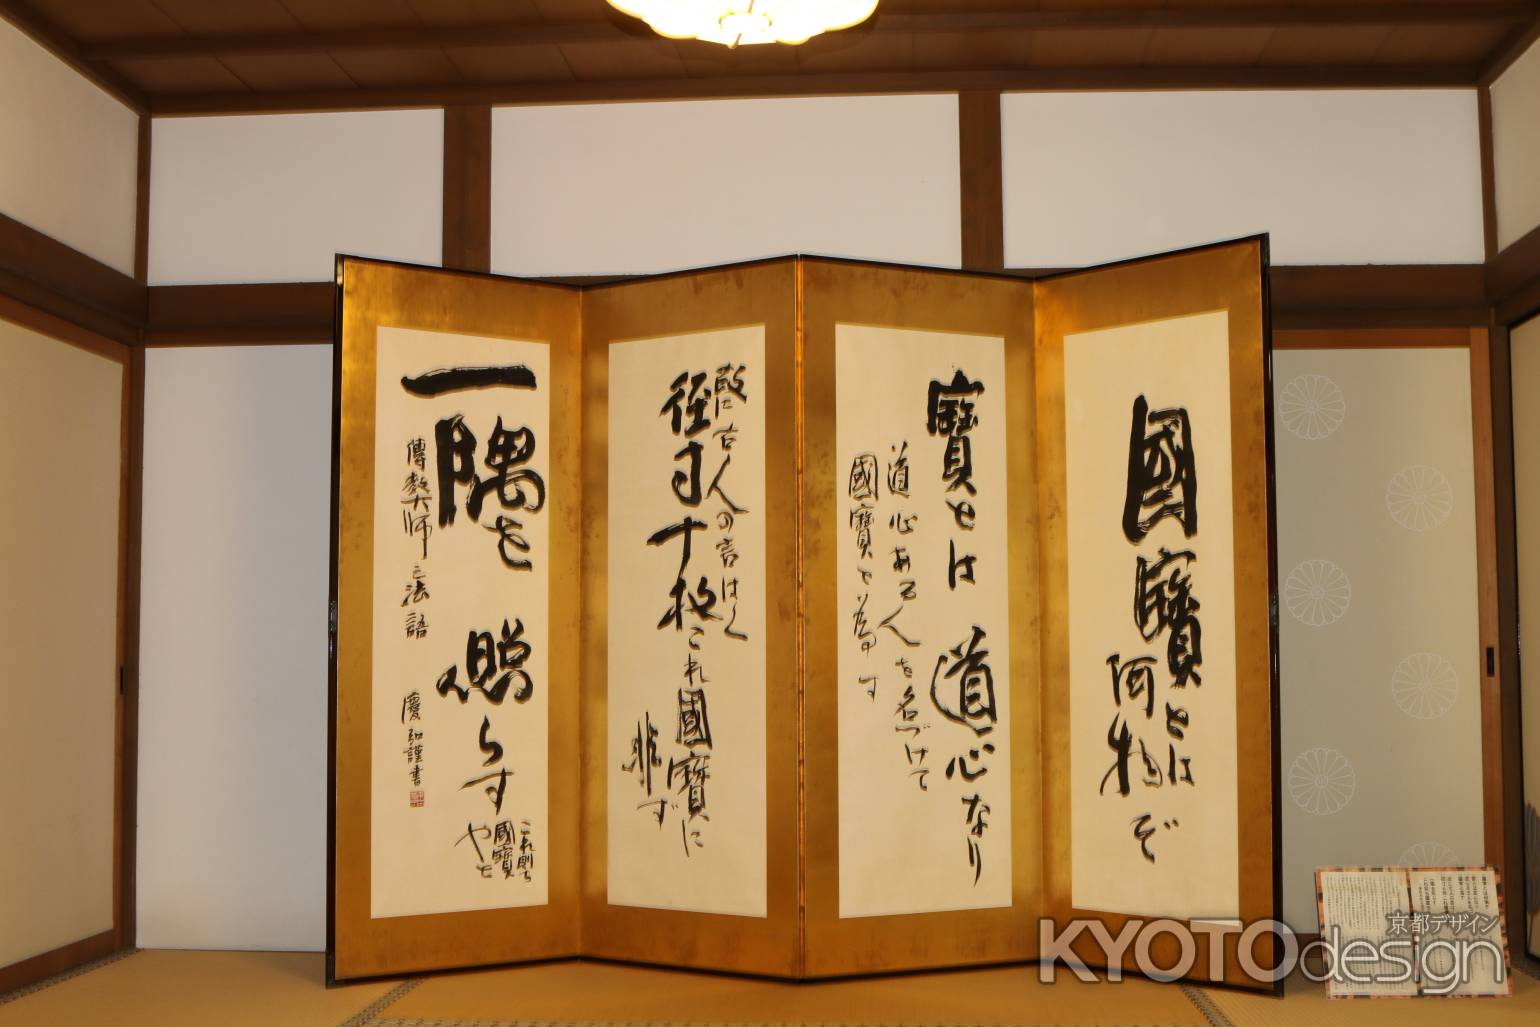 國寶とは
阿物ぞ
寶とは道心なり
道心ある人を名づけて
國寶と為す
故に古人の言はく
径寸十枚これ國寶に
非ず
一隅を
照らす
これ則ち
國寶
やと
傳教大師之法語
慶弘謹書
京都デザイン
KYOTOdesign